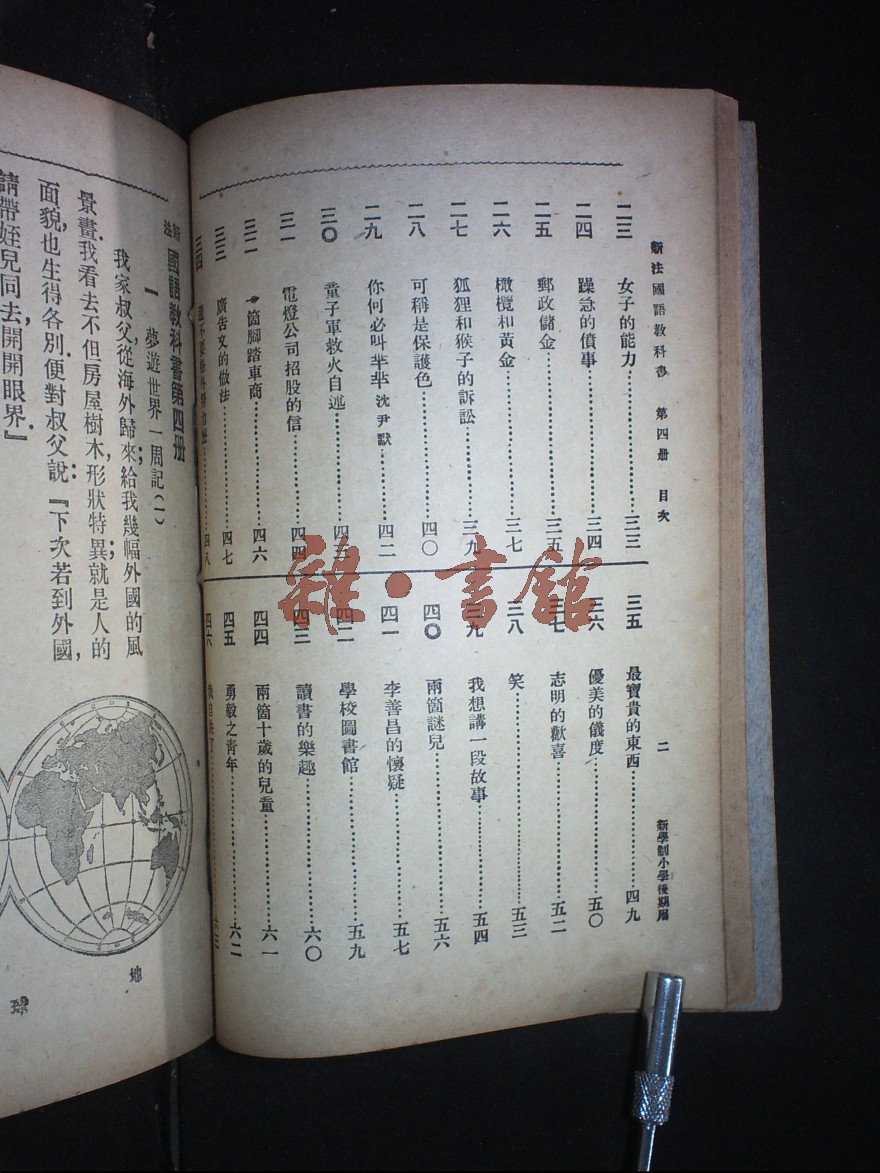 新法國語教科書 第四册 目次 二 新學制小學後期用
二三 女子的能力 三三
二四 躁急的僨事 三四
二五 郵政儲金 三五
二六 橄欖和黃金 三七
二七 狐狸和猴子的訴訟 三九
二八 可稱是保護色 四〇
二九 你何必叫芈芈 沈尹默 四二
三〇 童子軍救火自述 四三
三一 電燈公司招股的信 四四
三二 一箇腳踏車商 四六
三三 廣告文的做法 四七
三四 四八
三五 最寶貴的東西 四九
三六 優美的儀度 五〇
三七 志明的歡喜 五二
三八 笑 五三
三九 我想講一段故事 五四
四〇 兩箇謎兒 五六
四一 李善昌的懷疑 五七
四二 學校圖書館 五九
四三 讀書的樂趣 六〇
四四 兩箇十歲的兒童 六一
四五 勇毅之青年 六二
四六 六三
新法 國語教科書第四册
一 夢遊世界一周記(一)
我家叔父,從海外歸來;給我幾幅外國的風
景畫.我看去不但房屋樹木,形狀特異;就是人的
面貌,也生得各別.便對叔父說:『下次若到外國,
請帶姪兒同去,開開眼界.』
地
球
雜·書館